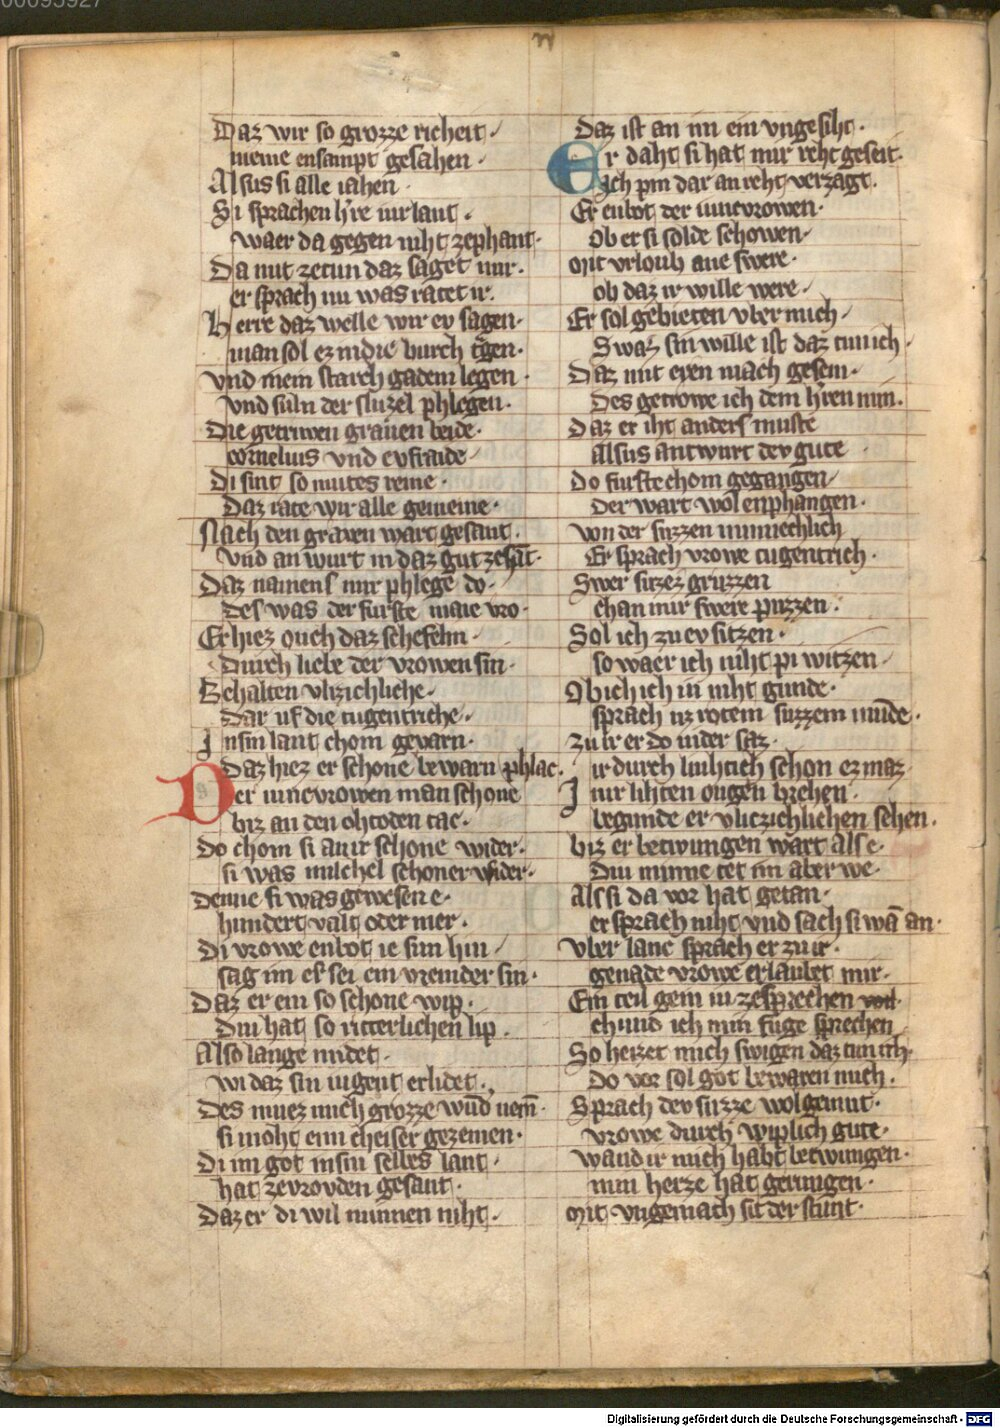 00095927
Daz wir so grozze richeit
nieme ensampt gesahen
Alsus si alle iahen
Si sprachen h're iur lant
waer da gegen niht ze phant
Da mit ze tun daz saget mir
er sprach nu was ratet ir
Herre daz welle wir ev sagen
man sol ez in die burch tgen
vnd in ein starch gadem legen
vnd suln der sluzel phlegen
Die getriwen graven beide
cornelius vnd evfraide
Di sint so mutes reine
Daz rate wir alle gemeine
Nach den graven wart gesant
vnd an wurt in daz gut zehāt
Daz namens mir phlege do
des was der furste maie vro
Er hiez ouch daz scheffelin
durch liebe der vrowen sin
Behalten vlizichliche
dar uf die tugentriche
In sin lant chom gevarn
Daz hiez er schone bewarn phlac
Der iuncvrowen man schone
biz an den ohtoden tac
do chom si an ir schone wider
si was michel schoner wider
denne si was gewesen e
hundert valt oder mer
Di vrowe enbot ie sim hin
sag im es sei ein vremder sin
Daz er ein so schone wip
diu hat so ritterlichen lip
Also lange midet
wi daz sin iugent erlidet
des muez mich grozze wūd nem̄
si moht eim cheiser gezemen
Di im got in sin selbes lant
hat ze vrovden gesant
Daz er di wil minnen niht
Daz ist an im ein vngesiht
Er daht si hat mir reht geseit
Ich pin dar an reht verzagt
Er enbot der iuncvrowen
ob er si solde schowen
Mit vrloub ane swere
ob daz ir wille were
Er sol gebieten vber mich
Swaz sin wille ist daz tun ich
Daz mit eren mach gesein
des getrowe ich dem h'ren min
Daz er iht anders muste
alsus antwurt dev gute
Do furste chom gegangen
der wart wol enphangen
von der suzzen minnechlich
Er sprach vrowe tugentrich
Swer suzez gruzzen
chan mir swere puzzen
Sol ich zu ev sitzen
so waer ich niht pi witzen
Ob ich ich iu niht gunde
sprach uz rotem suzzem mūde
zu ir er do nider saz
ir durch liuhtich schon ez maz
In ir lihten ougen brehen
begunde er vlizichlichen sehen
biz er betwungen wart als e
Diu minne tet im aber we
Als si da vor hat getan
er sprach niht vnd sach si wā an
vber lanc sprach er zu ir
genade vrowe erlaubet mir
Ein teil gein iu zesprechen
chund ich min fuge sprechen
So heizet mich swigen daz tun ich
do vor sol got bewaren mich
Sprach dev suzze wolgemut
vrowe durch wiplich gute
wand ir mich habt betwungen
min herze hat gerungen
Mit vngemach sit der stunt
Digitalisierung gefördert durch die Deutsche Forschungsgemeinschaft - DFG